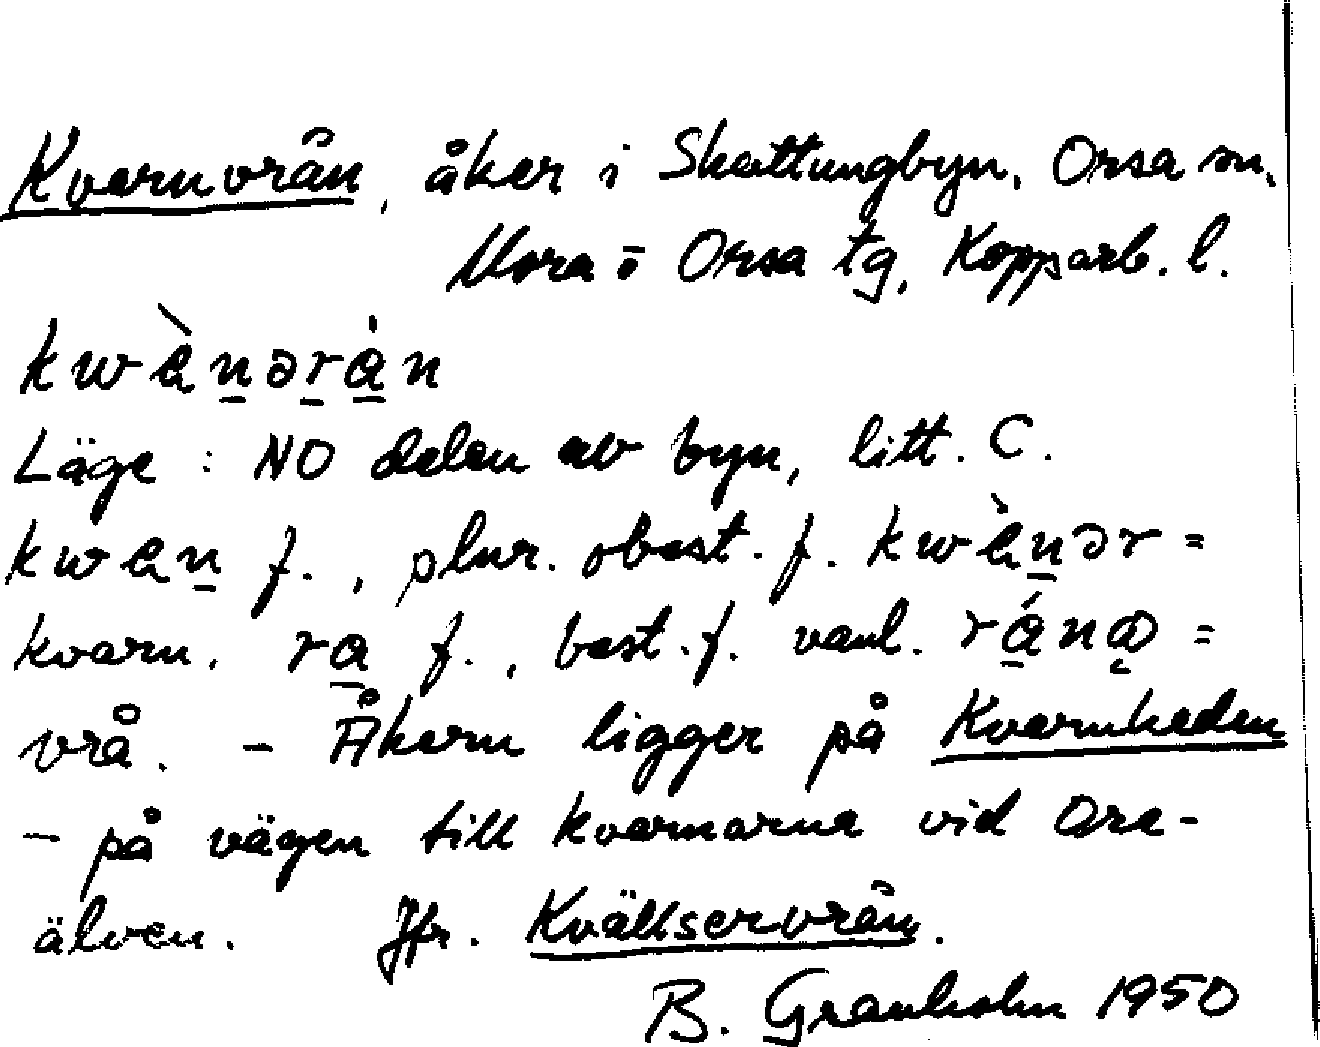 Kvarnvrån, åker i Skattungbyn, Orsa sn,
Mora o Orsa tg, Kopparb. l.
kwàṉəṟà̱n
Läge : NO delen av byn, litt. C.
kwaṉ f., plur. obest. f. kwàṉər =
kvarn. ra̱ f., best. f. vanl. rá̱na =
vrå. - Åkern ligger på Kvarnheden
- på vägen till kvarnarna vid Ore-
älven. Jfr. Kvällservrån.
B. Granholm 1950